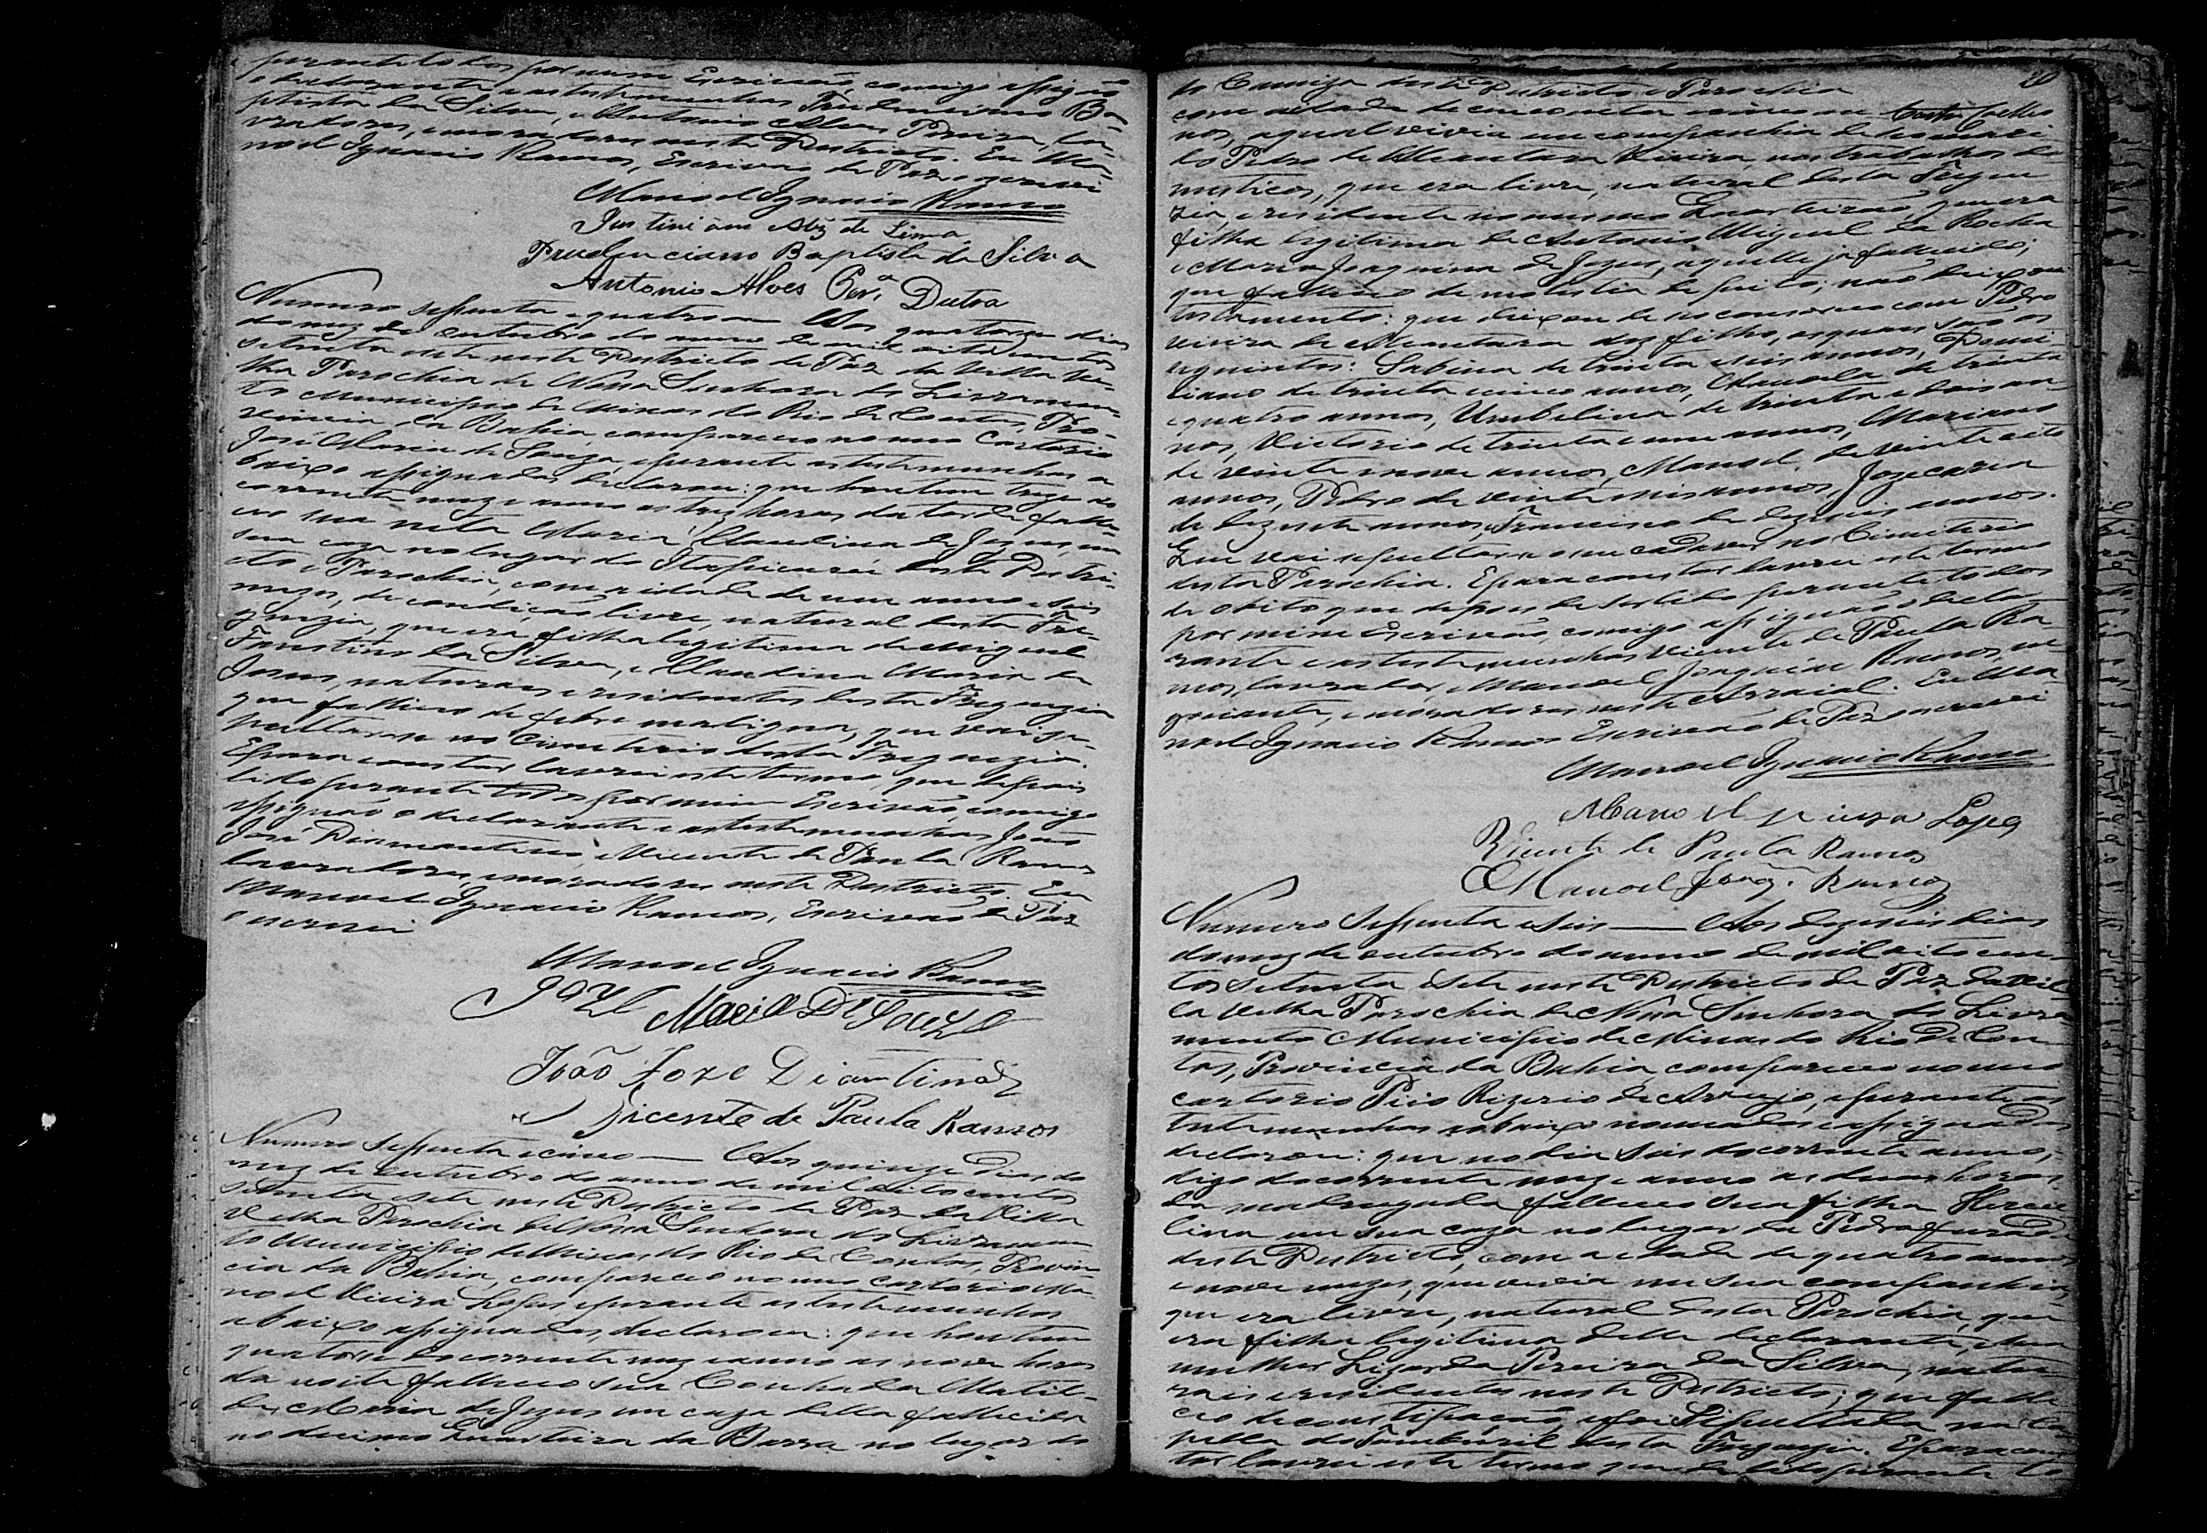 perante todos por mim Escrivão, comigo assignão
o declarante e as testemunhas Prudenciano Ba-
ptista da Silva, e Antonio Alves Pereira, la-
vradores, e moradores neste Districto. Eu Ma-
noel Ignacio Ramos, Escrivão de Paz o escrevi
Manoel Ignacio Ramos
Justiniano de Lima
Prudenciano Baptista da Silva
Antonio Alves Per.ª Dutra
Numero sessenta e quatro — Aos quatorze dias
do mez de outubro do anno de mil oito centos
setenta e sete neste Districto de Paz da Villa Ve-
lha Parochia de Nossa Senhora do Livramen-
to Municipio de Minas do Rio de Contas, Pro-
vincia da Bahia, compareceo no meo Cartorio
José Maria de Souza, e perante as testemunhas a
baixo assignadas declarou: que hontem treze do
corrente mez e anno as tres horas da tarde falle-
ceo sua neta Maria Claudina de Jesus, em
sua caza no lugar do deste Distri-
cto e Parochia, com a idade de um anno e seis
mezes, de condição livre, natural desta Fre-
guezia, que era filha legitima de Miguel
Faustino da Silva, e Claudina Maria de
Jesus, naturaes e residentes desta Freguezia
que falleceo de febre maligna, que vai se-
pultarse no Cimiterio desta Freguezia.
E para constar lavrei este termo, que depois
lido perante todos por mim Escrivão, comigo
assignão o declarante e as testemunhas João
José Diamantino, e Vicente de Paula Ramos
lavradores, e moradores neste Districto. Eu
Manoel Ignacio Ramos, Escrivão de Paz
o escrevi
Manoel Ignacio Ramos
Joze Maria De Souza
João Joze Diamtino
Vicente de Paula Ramos
Numero sessenta e cinco — Aos quinze Dias do
mez de outubro do anno de mil oito centos
setenta e sete neste Districto de Paz da Villa
Velha Parochia de Nossa Senhora do Livramen-
to Municipio de Minas do Rio de Contas, Provin-
cia da Bahia, compareceo no meo cartorio Ma-
noel Vieira Lopes e perante as testemunhas
abaixo assignadas, declarou: que hontem
quatorze do corrente mez e anno as nove horas
da noite falleceo sua Cunhada Matil-
des Maria de Jezus em caza della fallecida
no decimo Quarteirão da Barra no lugar do
deste Districto e Parochia
com idade de cincoenta e
nos, a qual vivia em companhia de seo mari-
do Pedro de Alcantara Vieira, nos trabalhos do
mesticos, que era livre, natural desta Fregue
zia, e residente no mesmo Quarteirão, que era
filha legitima de Antonio Miguel da Rocha
e Maria Joaquina de Jezus, aquelle ja fallecido;
que falleceo de molestia de peito, não deixou
testamento: que deixou de seo consorcio com Pedro
Vieira de Alcantara dez filhos, os quaes são os
seguintes: Sabina de trinta e seis annos,
de trinta e cinco annos, Manoela de trinta
e quatro annos, Umbelina de trinta e dois an
nos, Victorio de trinta e um annos, Mariano
de vinte e nove annos, Manoel de vinte e oito
annos, Pedro de vinte e seis annos,
de dezesete annos, Francisco de dezeseis annos.
Que vai sepultarse o seu cadaver no Cimiterio
desta Parochia. E para constar lavrei este termo
de obito que depois de ser lido perante todos
por mim Escrivão, comigo assignão o decla-
rante e as testemunhas Vicente de Paula Ra
mos, lavrador, e Manoel Joaquim Ramos, ne
gociante, e moradores neste Arraial. Eu Ma
noel Ignacio Ramos Escrivão de Paz o escrevi
Manoel Ignacio Ramos
Manoel Vieira Lopes
Vicente de Paula Ramos
Manoel Joaq.m Ramos
Numero sessenta e seis — Aos dezeseis dias
do mez de outubro do anno de mil oito cen-
tos setenta e sete neste Districto de Paz da Vil-
la Velha Parochia de Nossa Senhora do Livra-
mento Municipio de Minas do Rio de Con-
tas, Provincia da Bahia, compareceo no meo
cartorio Pio Rizerio de Araujo, e perante as
testemunhas abaixo nomeadas e assignadas
declarou: que no dia seis do corrente anno,
digo do corrente mez e anno as duas horas
da madrugada falleceo sua filha Hercu
lina em sua caza no lugar da Pedra furada
deste Districto, com a idade de quatro annos
e nove mezes, que vivia em sua companhia,
que era livre, natural desta Parochia, que
era filha legitima delle declarante, e sua
mulher Lizarda Pereira da Silva, natu-
raes e residentes neste Districto; que falle
ceo de constipação, e foi sepultada na Ca
pella do Tamboril desta Freguezia. E para cons
tar lavrei este termo que de lido perante to